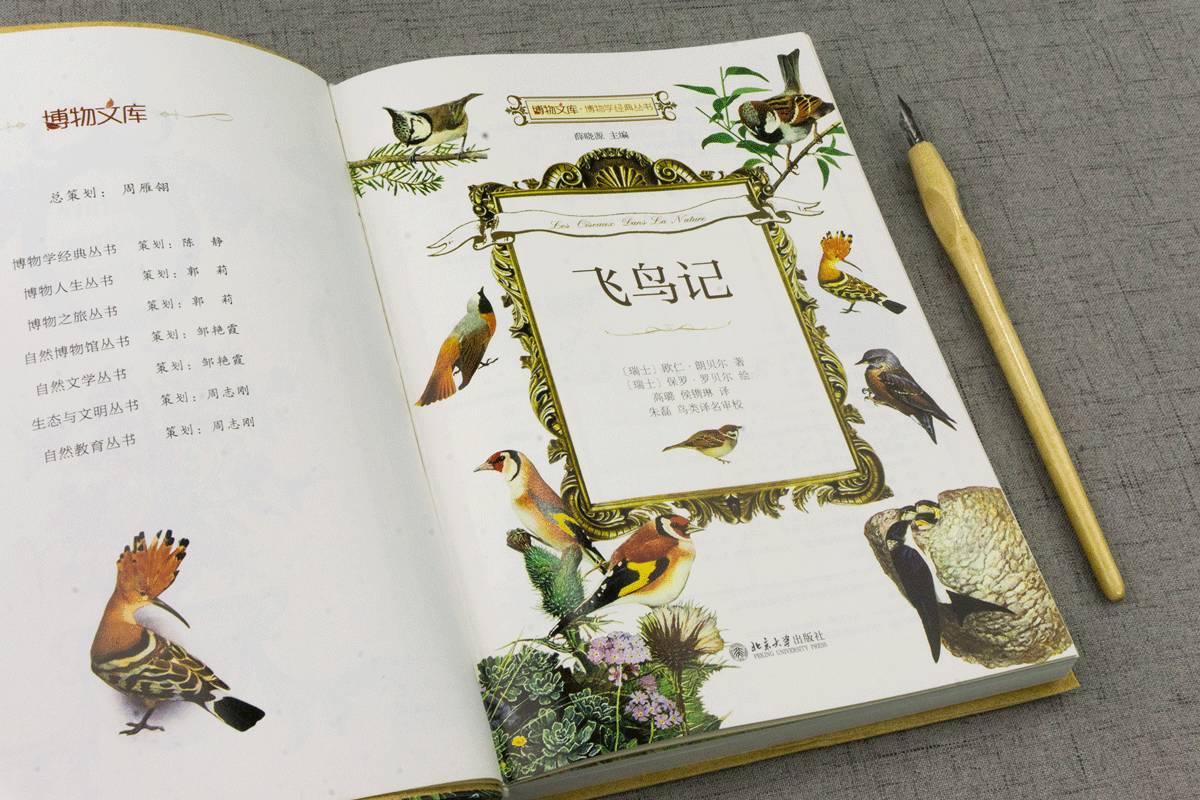 博物文库
总策划：周雁翎
博物学经典丛书 策划：陈 静
博物人生丛书 策划：郭 莉
博物之旅丛书 策划：郭 莉
自然博物馆丛书 策划：邹艳霞
自然文学丛书 策划：邹艳霞
生态与文明丛书 策划：周志刚
自然教育丛书 策划：周志刚
博物文库·博物学经典丛书
薛晓源 主编
Les Oiseaux Dans La Nature
飞鸟记
〔瑞士〕欧仁·朗贝尔 著
〔瑞士〕保罗·罗贝尔 绘
高璐 侯镌琳 译
朱磊 鸟类译名审校
北京大学出版社
PEKING UNIVERSITY PRESS